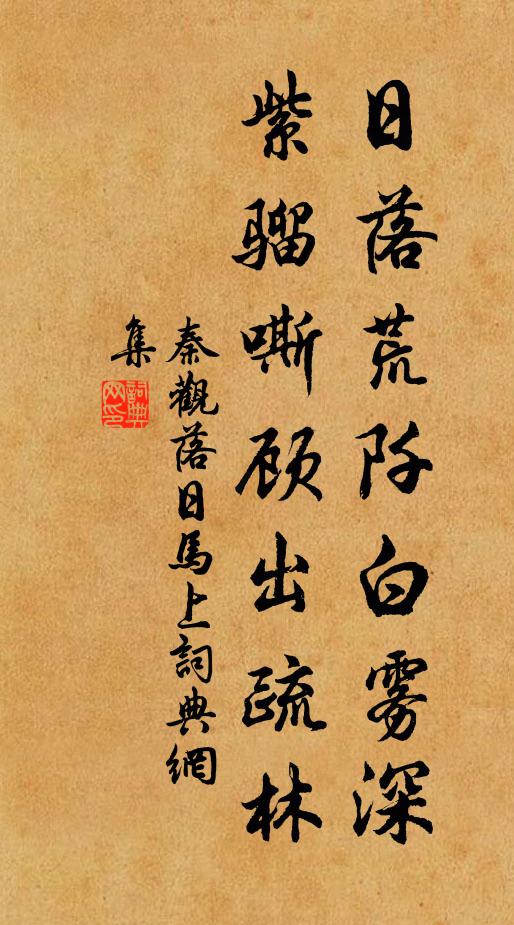 日落荒阡白雾深
紫骝嘶顾出疏林
秦觀落日馬上詞典網
集
詞典網印